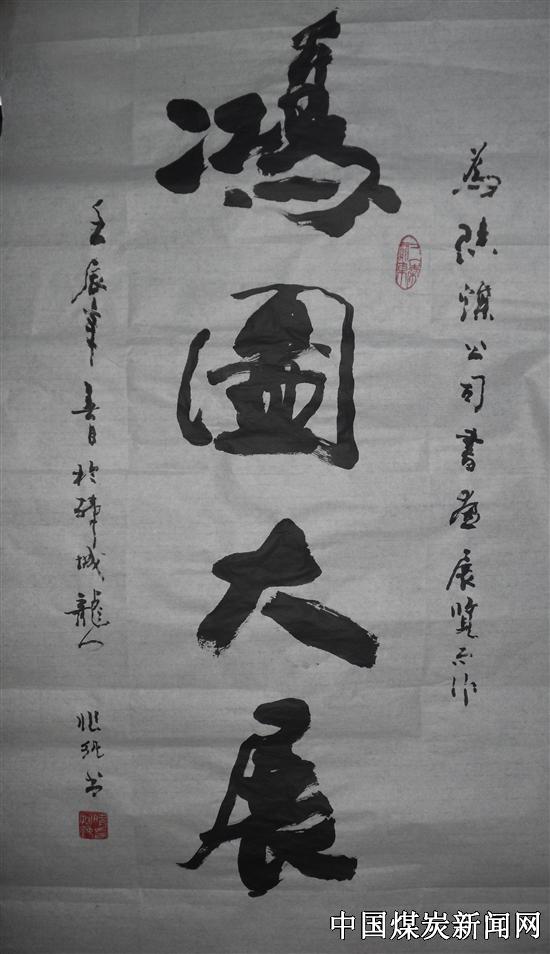 為陕煤公司書畫展覽而作
鴻圖大展
壬辰年春日於城龍人
书
中国煤炭新闻网